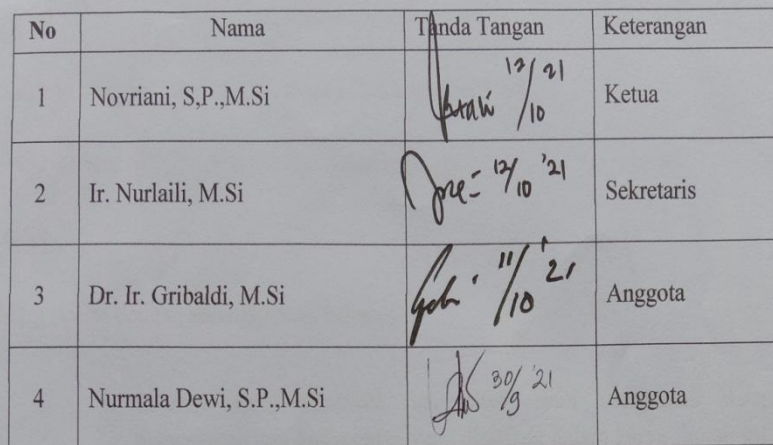 No Nama Tanda Tangan Keterangan
1 Novriani, S,P.,M.Si 12/10 21 Ketua
2 Ir. Nurlaili, M.Si 12/10 '21 Sekretaris
3 Dr. Ir. Gribaldi, M.Si 11/10 '21 Anggota
4 Nurmala Dewi, S.P.,M.Si 30/9 '21 Anggota